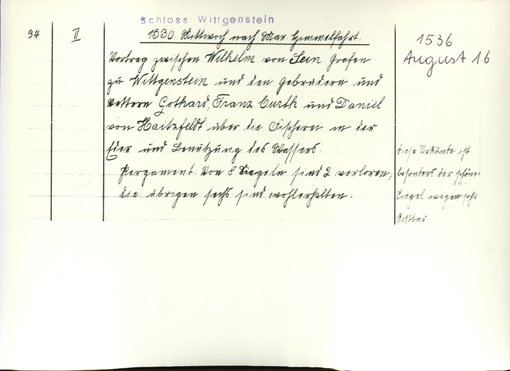 Schloss Wittgenstein
94 II 1536 Mittwoch nach Mar. Himmelfahrt.
Vertrag zwischen Wilhelm von Sein Grafen
zu Wittgenstein und den Gebrüdern und
Vettern Gothard, Franz Curth und Daniel
von Haitzfeldt über die Fischerei in der
Eder und Benützung des Wassers.
Pergament. Von 8 Siegeln sind 2 verloren,
die übrigen sechs sind wohlerhalten.
1536
August 16
Diese Urkunde ist
besonders der schönen
Siegel wegen sehr
kostbar